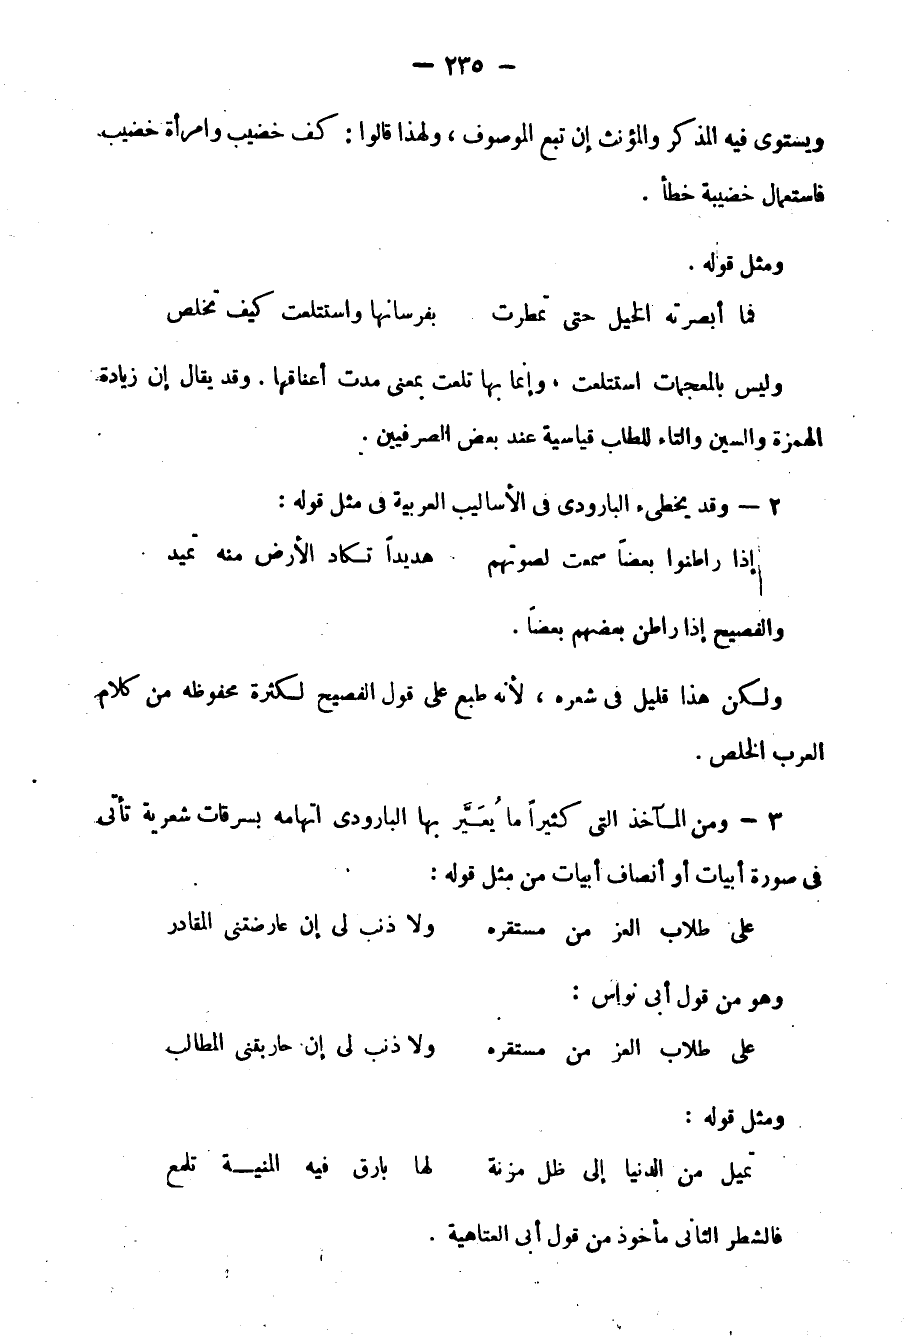 — ٢٣٥ —
ويستوى فيه المذكر والمؤنث إن تبع الموصوف ، ولهذا قالوا : كف خضيب وامرأة خضيب
فاستعمال خضيبة خطأ .
ومثل قوله .
فما أبصرته الخيل حتى تمطرت بفرسانها واستتلعت كيف تخلص
وليس بالمعجمات استتلعت ، وإنما بها تلعت بمعنى مدت أعناقها . وقد يقال إن زيادة
الهمزة والسين والتاء للطاب قياسية عند بعض الصرفيين .
٢ — وقد يخطىء البارودى فى الأساليب العربية فى مثل قوله :
إذا راطنوا بعضاً سمعت لصوتهم هديداً تكاد الأرض منه تميد
والفصيح إذا راطن بعضهم بعضاً .
ولكن هذا قليل فى شعره ، لأنه طبع على قول الفصيح لكثرة محفوظه من كلام
العرب الخلص .
٣ — ومن المآخذ التى كثيراً ما يُعَيَّر بها البارودى اتهامه بسرقات شعرية تأتى
فى صورة أبيات أو أنصاف أبيات من مثل قوله :
على طلاب العز من مستقره ولا ذنب لى إن عارضتنى المقادر
وهو من قول أبى نواس :
على طلاب العز من مستقره ولا ذنب لى إن حاربقنى المطالب
ومثل قوله :
تميل من الدنيا إلى ظل مزنة لها بارق فيه المنيــة تلمع
فالشطر الثانى مأخوذ من قول أبى العتاهية .